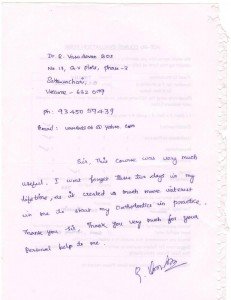 Dr. R. Vasudevan BDS
No 17, Q.V. Plots, Phase-2
Sathuvachari,
Vellore - 632 009
Ph: 93450 59439
Email:
Sir, This course was very much
useful. I wont forget these ten days in my
lifetime, as it created so much more interest
in me to start my orthodontics in practice.
Thank you Sir. Thank you very much for your
personal help to me.